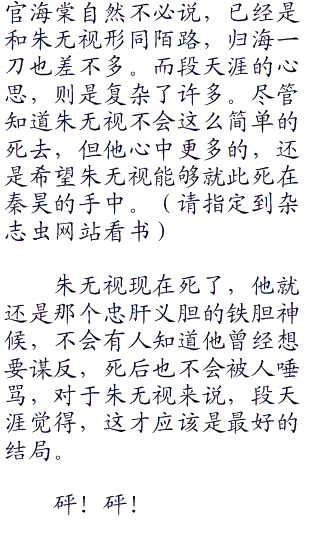 官海棠自然不必说，已经是
和朱无视形同陌路，归海一
刀也差不多。而段天涯的心
思，则是复杂了许多。尽管
知道朱无视不会这么简单的
死去，但他心中更多的，还
是希望朱无视能够就此死在
秦昊的手中。（请指定到杂
志虫网站看书）
朱无视现在死了，他就
还是那个忠肝义胆的铁胆神
候，不会有人知道他曾经想
要谋反，死后也不会被人唾
骂，对于朱无视来说，段天
涯觉得，这才应该是最好的
结局。
砰！砰！